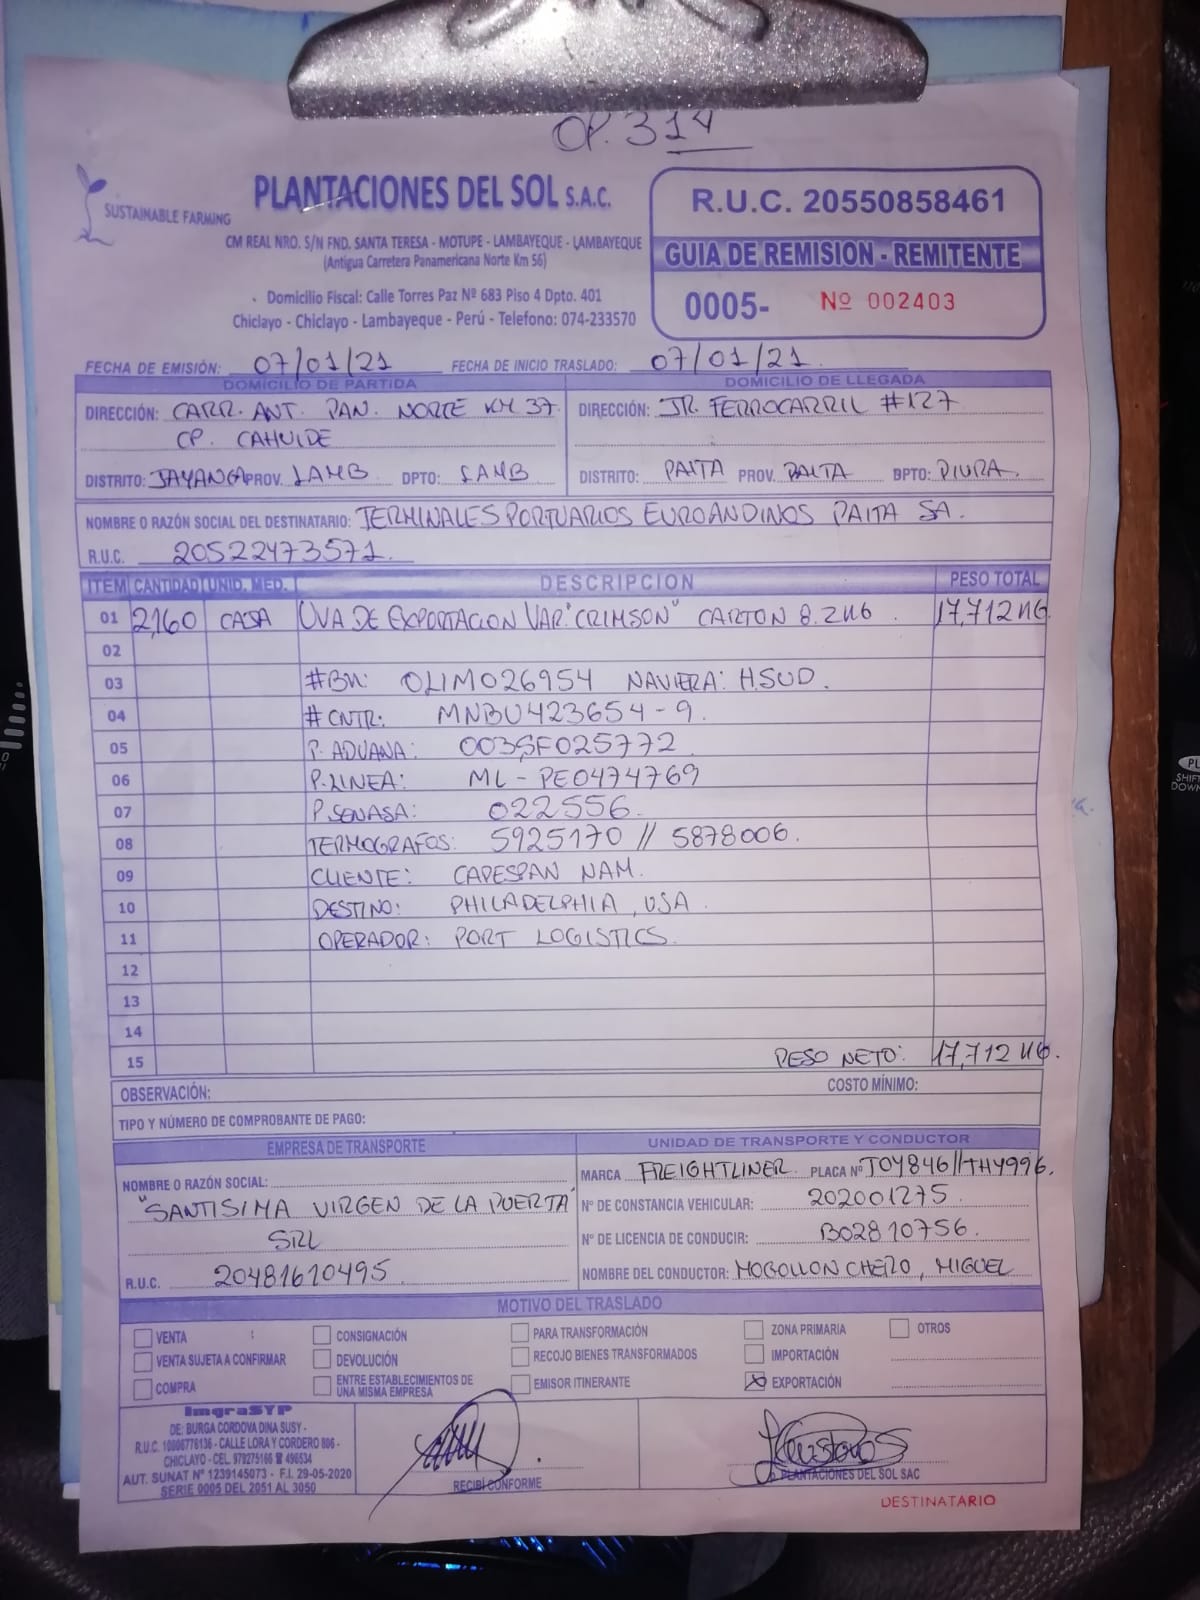 OP. 314
SUSTAINABLE FARMING
PLANTACIONES DEL SOL S.A.C.
CM REAL NRO. S/N FND. SANTA TERESA - MOTUPE - LAMBAYEQUE - LAMBAYEQUE
(Antigua Carretera Panamericana Norte Km 56)
Domicilio Fiscal: Calle Torres Paz Nº 683 Piso 4 Dpto. 401
Chiclayo - Chiclayo - Lambayeque - Perú - Telefono: 074-233570
R.U.C. 20550858461
GUIA DE REMISION - REMITENTE
0005- Nº 002403
FECHA DE EMISIÓN: 07/01/21 FECHA DE INICIO TRASLADO: 07/01/21.
DOMICILIO DE PARTIDA
DIRECCIÓN: CARR. ANT. PAN. NORTE KM 37
CP. CAHUIDE
DISTRITO: JAYANCA PROV. LAMB. DPTO: LAMB
DOMICILIO DE LLEGADA
DIRECCIÓN: JR. FERROCARRIL #127
DISTRITO: PAITA PROV. PAITA DPTO: PIURA.
NOMBRE O RAZÓN SOCIAL DEL DESTINATARIO: TERMINALES PORTUARIOS EUROANDINOS PAITA SA.
R.U.C. 20522473571.
ITEM CANTIDAD UNID. MED. DESCRIPCION PESO TOTAL
01 2,160 CAJA UVA DE EXPORTACION VAR. "CRIMSON" CARTON 8.2KG. 17,712 KG.
02
03 #BK: OLIM026954 NAVIERA: H.SUD.
04 # CNTR: MNBU423654-9.
05 P. ADUANA: 003SF025772
06 P. LINEA: ML-PE0474769
07 P. SENASA: 022556.
08 TERMOGRAFOS: 5925170 // 5878006.
09 CLIENTE: CAPESPAN NAM.
10 DESTINO: PHILADELPHIA, USA.
11 OPERADOR: PORT LOGISTICS.
12
13
14
15 PESO NETO: 17,712 KG.
OBSERVACIÓN: COSTO MÍNIMO:
TIPO Y NÚMERO DE COMPROBANTE DE PAGO:
EMPRESA DE TRANSPORTE
NOMBRE O RAZÓN SOCIAL:
"SANTISIMA VIRGEN DE LA PUERTA"
SRL
R.U.C. 20481610495
UNIDAD DE TRANSPORTE Y CONDUCTOR
MARCA FREIGHTLINER. PLACA Nº TOY846//THY996.
Nº DE CONSTANCIA VEHICULAR: 202001275.
Nº DE LICENCIA DE CONDUCIR: B02810756.
NOMBRE DEL CONDUCTOR: MOGOLLON CHERO, MIGUEL
MOTIVO DEL TRASLADO
VENTA CONSIGNACIÓN PARA TRANSFORMACIÓN ZONA PRIMARIA OTROS
VENTA SUJETA A CONFIRMAR DEVOLUCIÓN RECOJO BIENES TRANSFORMADOS IMPORTACIÓN
COMPRA ENTRE ESTABLECIMIENTOS DE UNA MISMA EMPRESA EMISOR ITINERANTE X EXPORTACIÓN
ImgraSYP
DE: BURGA CORDOVA DINA SUSY -
R.U.C. 10806776136 - CALLE LORA Y CORDERO 806 -
CHICLAYO - CEL. 979275166 ☎ 496534
AUT. SUNAT Nº 1239145073 - F.I. 29-05-2020
SERIE 0005 DEL 2051 AL 3050
RECIBÍ CONFORME
PLANTACIONES DEL SOL SAC
DESTINATARIO